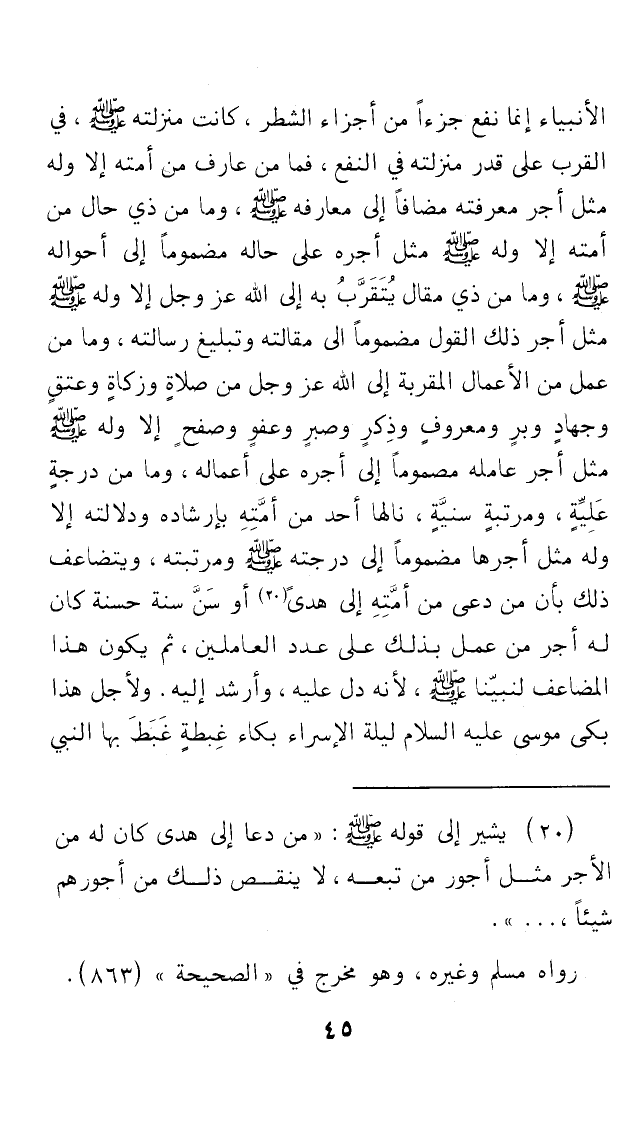 الأنبياء إنما نفع جزءاً من أجزاء الشطر ، كانت منزلته ﷺ ، في
القرب على قدر منزلته في النفع ، فما من عارف من أمته إلا وله
مثل أجر معرفته مضافاً إلى معارفه ﷺ ، وما من ذي حال من
أمته إلا وله ﷺ مثل أجره على حاله مضموماً إلى أحواله
ﷺ ، وما من ذي مقال يُتَقَرَّبُ به إلى الله عز وجل إلا وله ﷺ
مثل أجر ذلك القول مضموماً الى مقالته وتبليغ رسالته ، وما من
عمل من الأعمال المقربة إلى الله عز وجل من صلاةٍ وزكاةٍ وعتقٍ
وجهادٍ وبرٍ ومعروفٍ وذِكرٍ وصبرٍ وعفوٍ وصفحٍ إلا وله ﷺ
مثل أجر عامله مصموماً إلى أجره على أعماله ، وما من درجةٍ
عَلِيَّةٍ ، ومرتبةٍ سنيَّةٍ ، نالها أحد من أمَّتِهِ بإرشاده ودلالته إلا
وله مثل أجرها مضموماً إلى درجته ﷺ ومرتبته ، ويتضاعف
ذلك بأن من دعى من أمَّتِهِ إلى هدىً(٢٠) أو سَنَّ سنة حسنة كان
له أجر من عمل بذلك على عدد العاملين ، ثم يكون هذا
المضاعف لنبيّنا ﷺ ، لأنه دل عليه ، وأرشد إليه . ولأجل هذا
بكى موسى عليه السلام ليلة الإسراء بكاء غِبطةٍ غَبَطَ بها النبي
(٢٠) يشير إلى قوله ﷺ : « من دعا إلى هدى كان له من
الأجر مثل أجور من تبعه ، لا ينقص ذلك من أجورهم
شيئاً ، ... » .
رواه مسلم وغيره ، وهو مخرج في « الصحيحة » (٨٦٣) .
٤٥